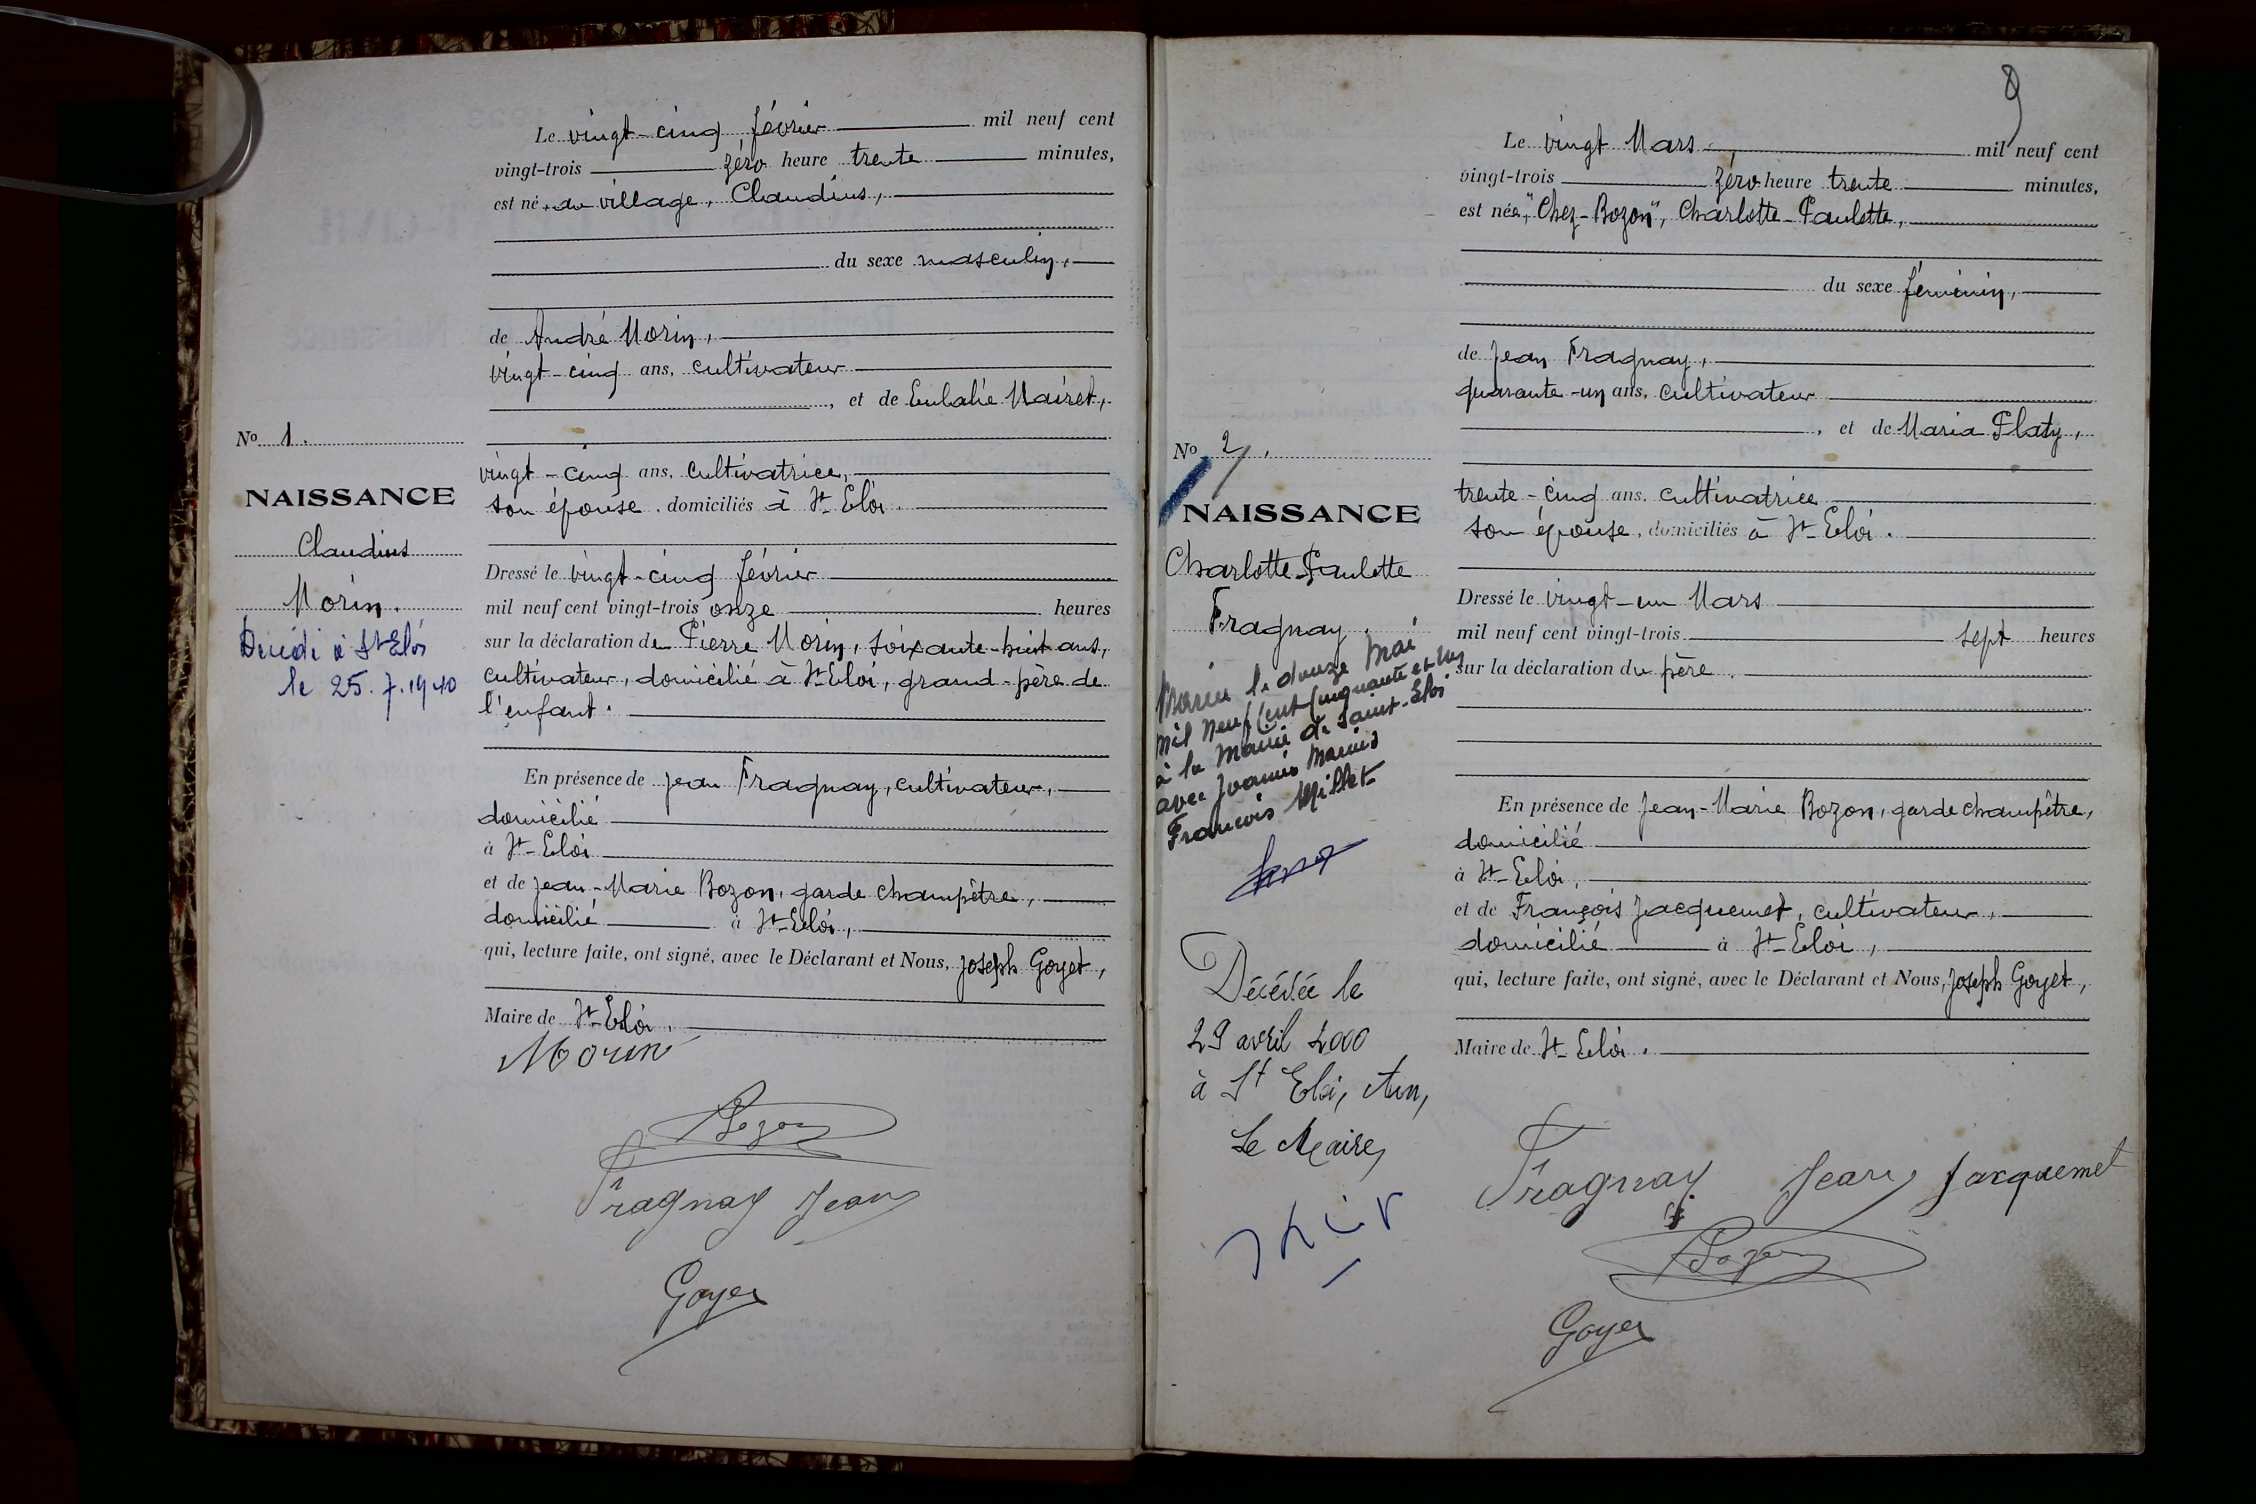 Le vingt-cinq février mil neuf cent
vingt-trois zéro heure trente minutes,
est né, au village, Claudius,
du sexe masculin,
de André Morin,
vingt-cinq ans, cultivateur
, et de Eulalie Mairet,
No 1.
vingt-cinq ans, cultivatrice,
NAISSANCE
son épouse, domiciliés à St-Eloi.
Claudius
Dressé le vingt-cinq février
Morin.
mil neuf cent vingt-trois onze heures
Décédé à St Eloi
le 25.7.1940
sur la déclaration de Pierre Morin, soixante-huit ans,
cultivateur, domicilié à St-Eloi, grand-père de
l'enfant.
En présence de Jean Fragnay, cultivateur,
domicilié
à St-Eloi
et de Jean-Marie Bozon, garde champêtre,
domicilié à St-Eloi,
qui, lecture faite, ont signé, avec le Déclarant et Nous, Joseph Goyet,
Maire de St-Eloi.
Morin
Bozon
Fragnay Jean
Goyet
9
Le vingt Mars mil neuf cent
vingt-trois zéro heure trente minutes,
est née, "Chez-Bozon", Charlotte-Paulette,
du sexe féminin,
de Jean Fragnay,
quarante-un ans, cultivateur
, et de Maria Platy,
No 2.
trente-cinq ans, cultivatrice
NAISSANCE
son épouse, domiciliés à St-Eloi.
Charlotte-Paulette
Fragnay.
Dressé le vingt-un Mars
mil neuf cent vingt-trois sept heures
sur la déclaration du père.
Mariée le douze Mai
mil neuf cent cinquante et un
à la Mairie de Saint-Eloi
avec Joannès Marius
François Millet
En présence de Jean-Marie Bozon, garde champêtre,
domicilié
à St-Eloi,
et de François Jacquemet, cultivateur,
domicilié à St-Eloi,
qui, lecture faite, ont signé, avec le Déclarant et Nous, Joseph Goyet,
Maire de St-Eloi.
Décédée le
29 avril 2000
à St Eloi, Ain,
Le Maire,
Fragnay Jean Jacquemet
Bozon
Goyet